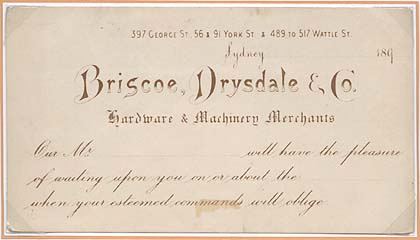 397 George St. 56 & 91 York St. & 489 to 517 Wattle St.
Sydney 189
Briscoe, Drysdale & Co.
Hardware & Machinery Merchants
Our Mr. will have the pleasure
of waiting upon you on or about the
when your esteemed commands will oblige